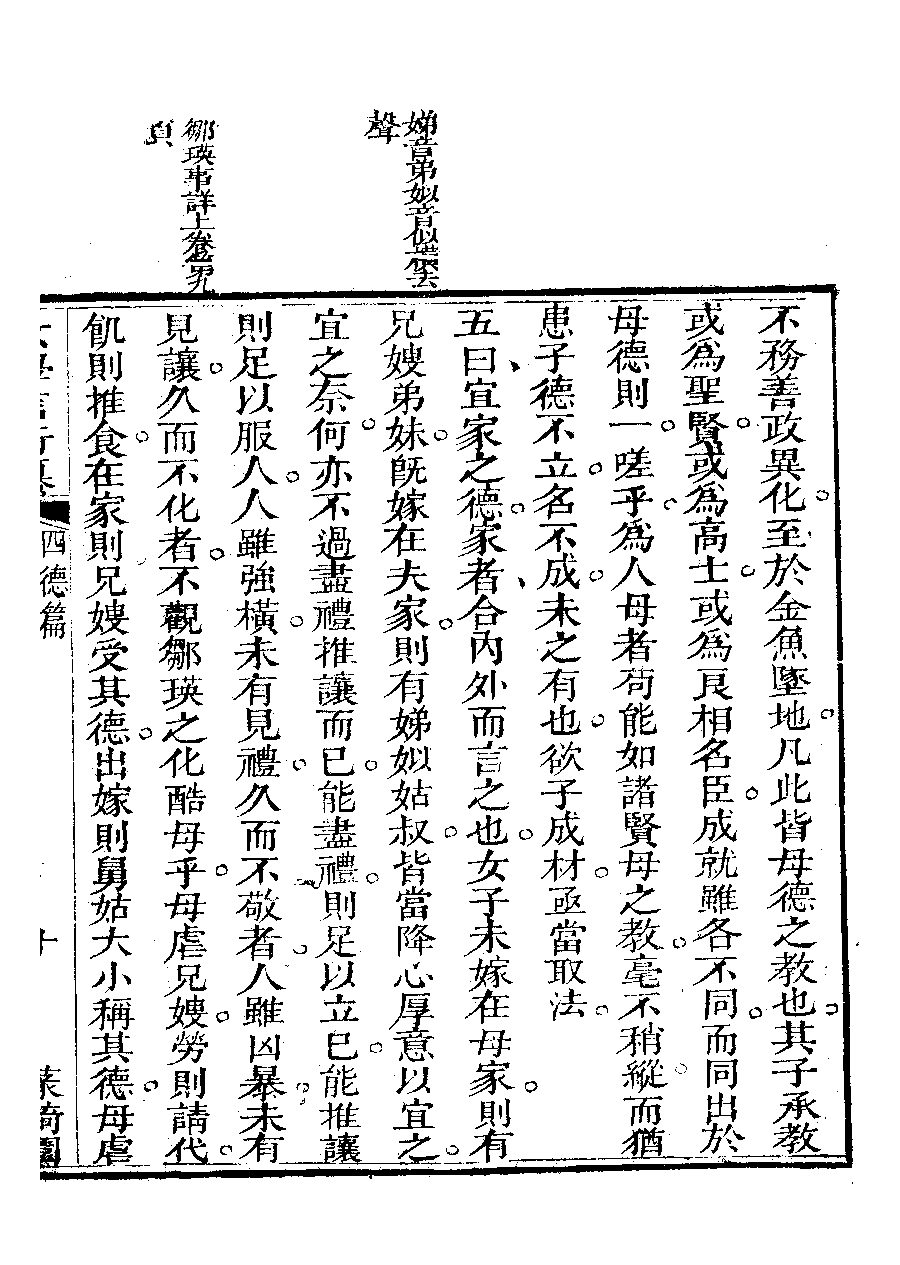 娣音弟姒音似並去
聲
鄒瑛事詳上卷
頁
不務善政異化。至於金魚墜地。凡此皆母德之教也。其子承教
或為聖賢。或為高士。或為良相名臣。成就雖各不同。而同出於
母德則一。嗟乎。為人母者。苟能如諸賢母之教。毫不稍縱。而猶
患子德不立。名不成。未之有也。欲子成材。亟當取法。
五曰、宜家之德。家者、合內外而言之也。女子未嫁在母家。則有
兄嫂弟妹。旣嫁在夫家。則有娣姒姑叔。皆當降心厚意以宜之。
宜之奈何。亦不過盡禮推讓而已。能盡禮。則足以立已。能推讓
則足以服人。人雖強橫。未有見禮。久而不敬者。人雖凶暴。未有
見讓。久而不化者。不觀鄒瑛之化酷母乎。母虐兄嫂。勞則請代。
飢則推食。在家則兄嫂受其德。出嫁則舅姑大小稱其德。母虐
四德篇